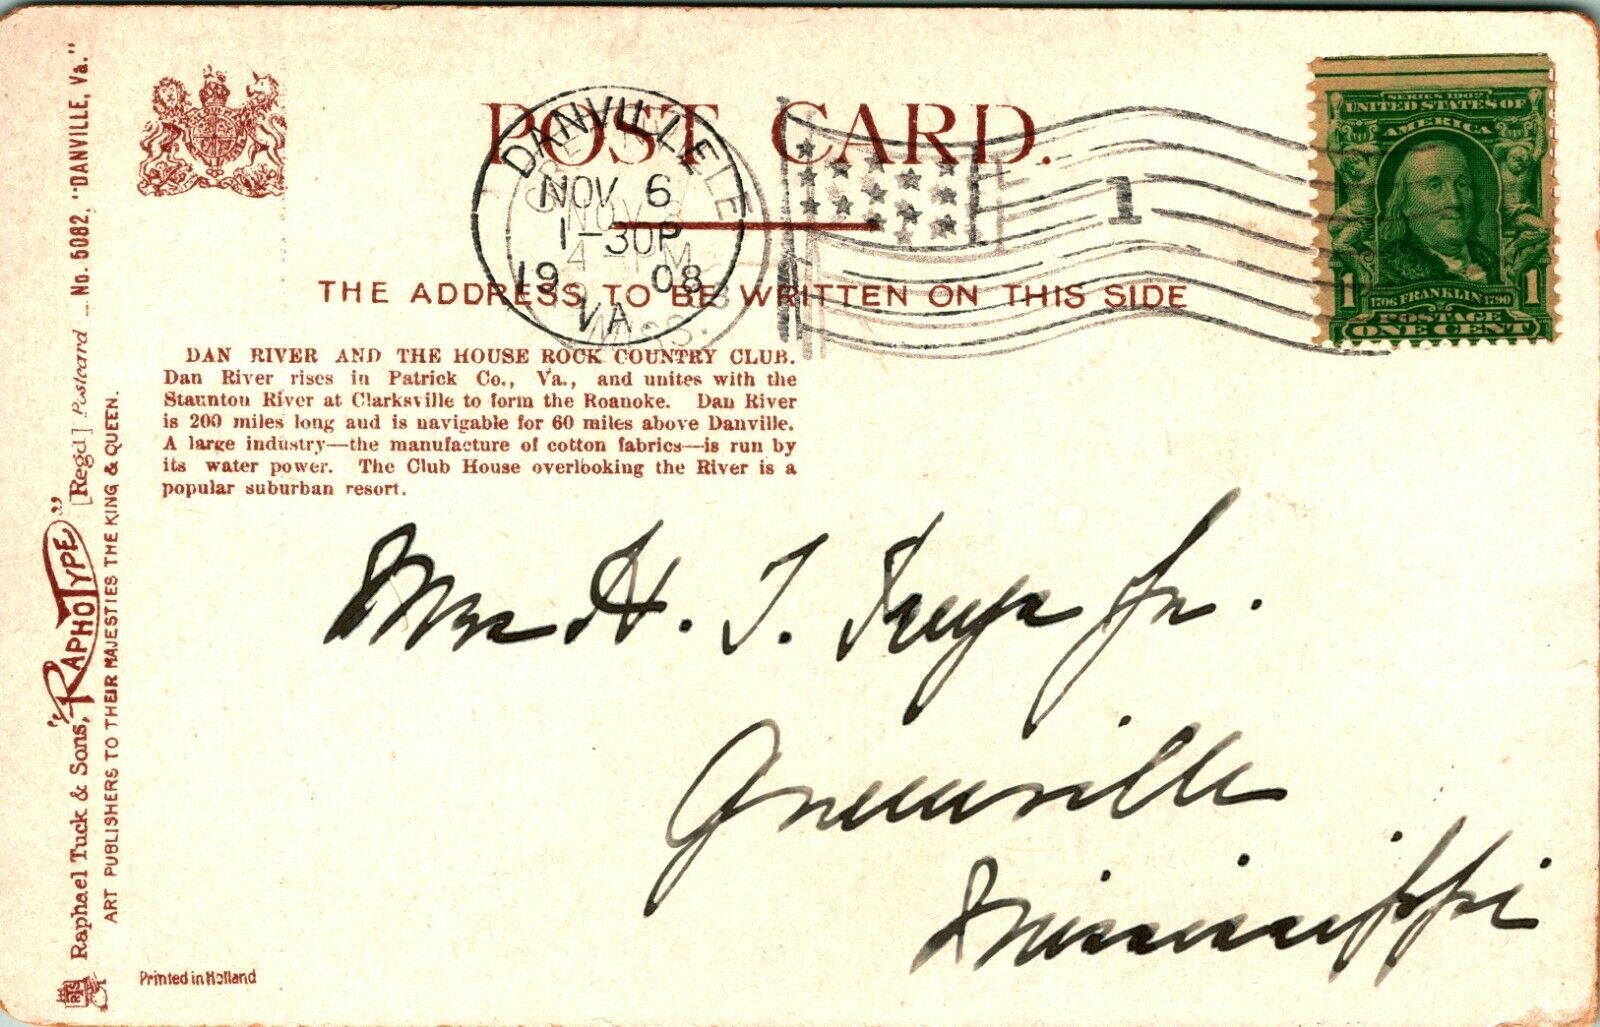 POST CARD.
DANVILLE
NOV 6
1-30P
1908
VA
GREENVILLE
NOV 8
4 - PM
MISS.
1
SERIES 1902
UNITED STATES OF
AMERICA
1 1706 FRANKLIN 1790 1
POSTAGE
ONE CENT
THE ADDRESS TO BE WRITTEN ON THIS SIDE
DAN RIVER AND THE HOUSE ROCK COUNTRY CLUB.
Dan River rises in Patrick Co., Va., and unites with the
Staunton River at Clarksville to form the Roanoke. Dan River
is 200 miles long and is navigable for 60 miles above Danville.
A large industry—the manufacture of cotton fabrics—is run by
its water power. The Club House overlooking the River is a
popular suburban resort.
Mrs H. T. Jr.
Greenville
Mississippi
Raphael Tuck & Sons, "RAPHOTYPE" [Regd] Postcard ... No. 5082, "DANVILLE, Va."
ART PUBLISHERS TO THEIR MAJESTIES THE KING & QUEEN.
Printed in Holland